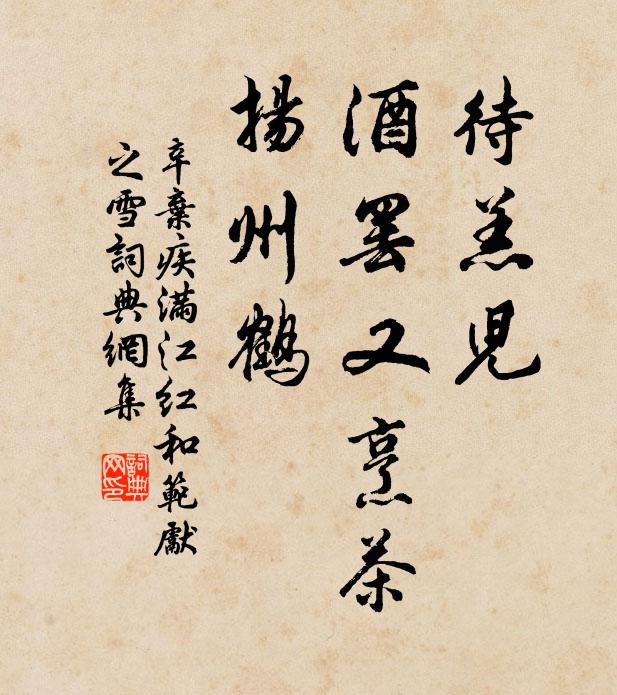 待羔児
酒罢又烹茶
揚州鶴
辛棄疾滿江红和範獻
之雪詞典網集
詞典
网印